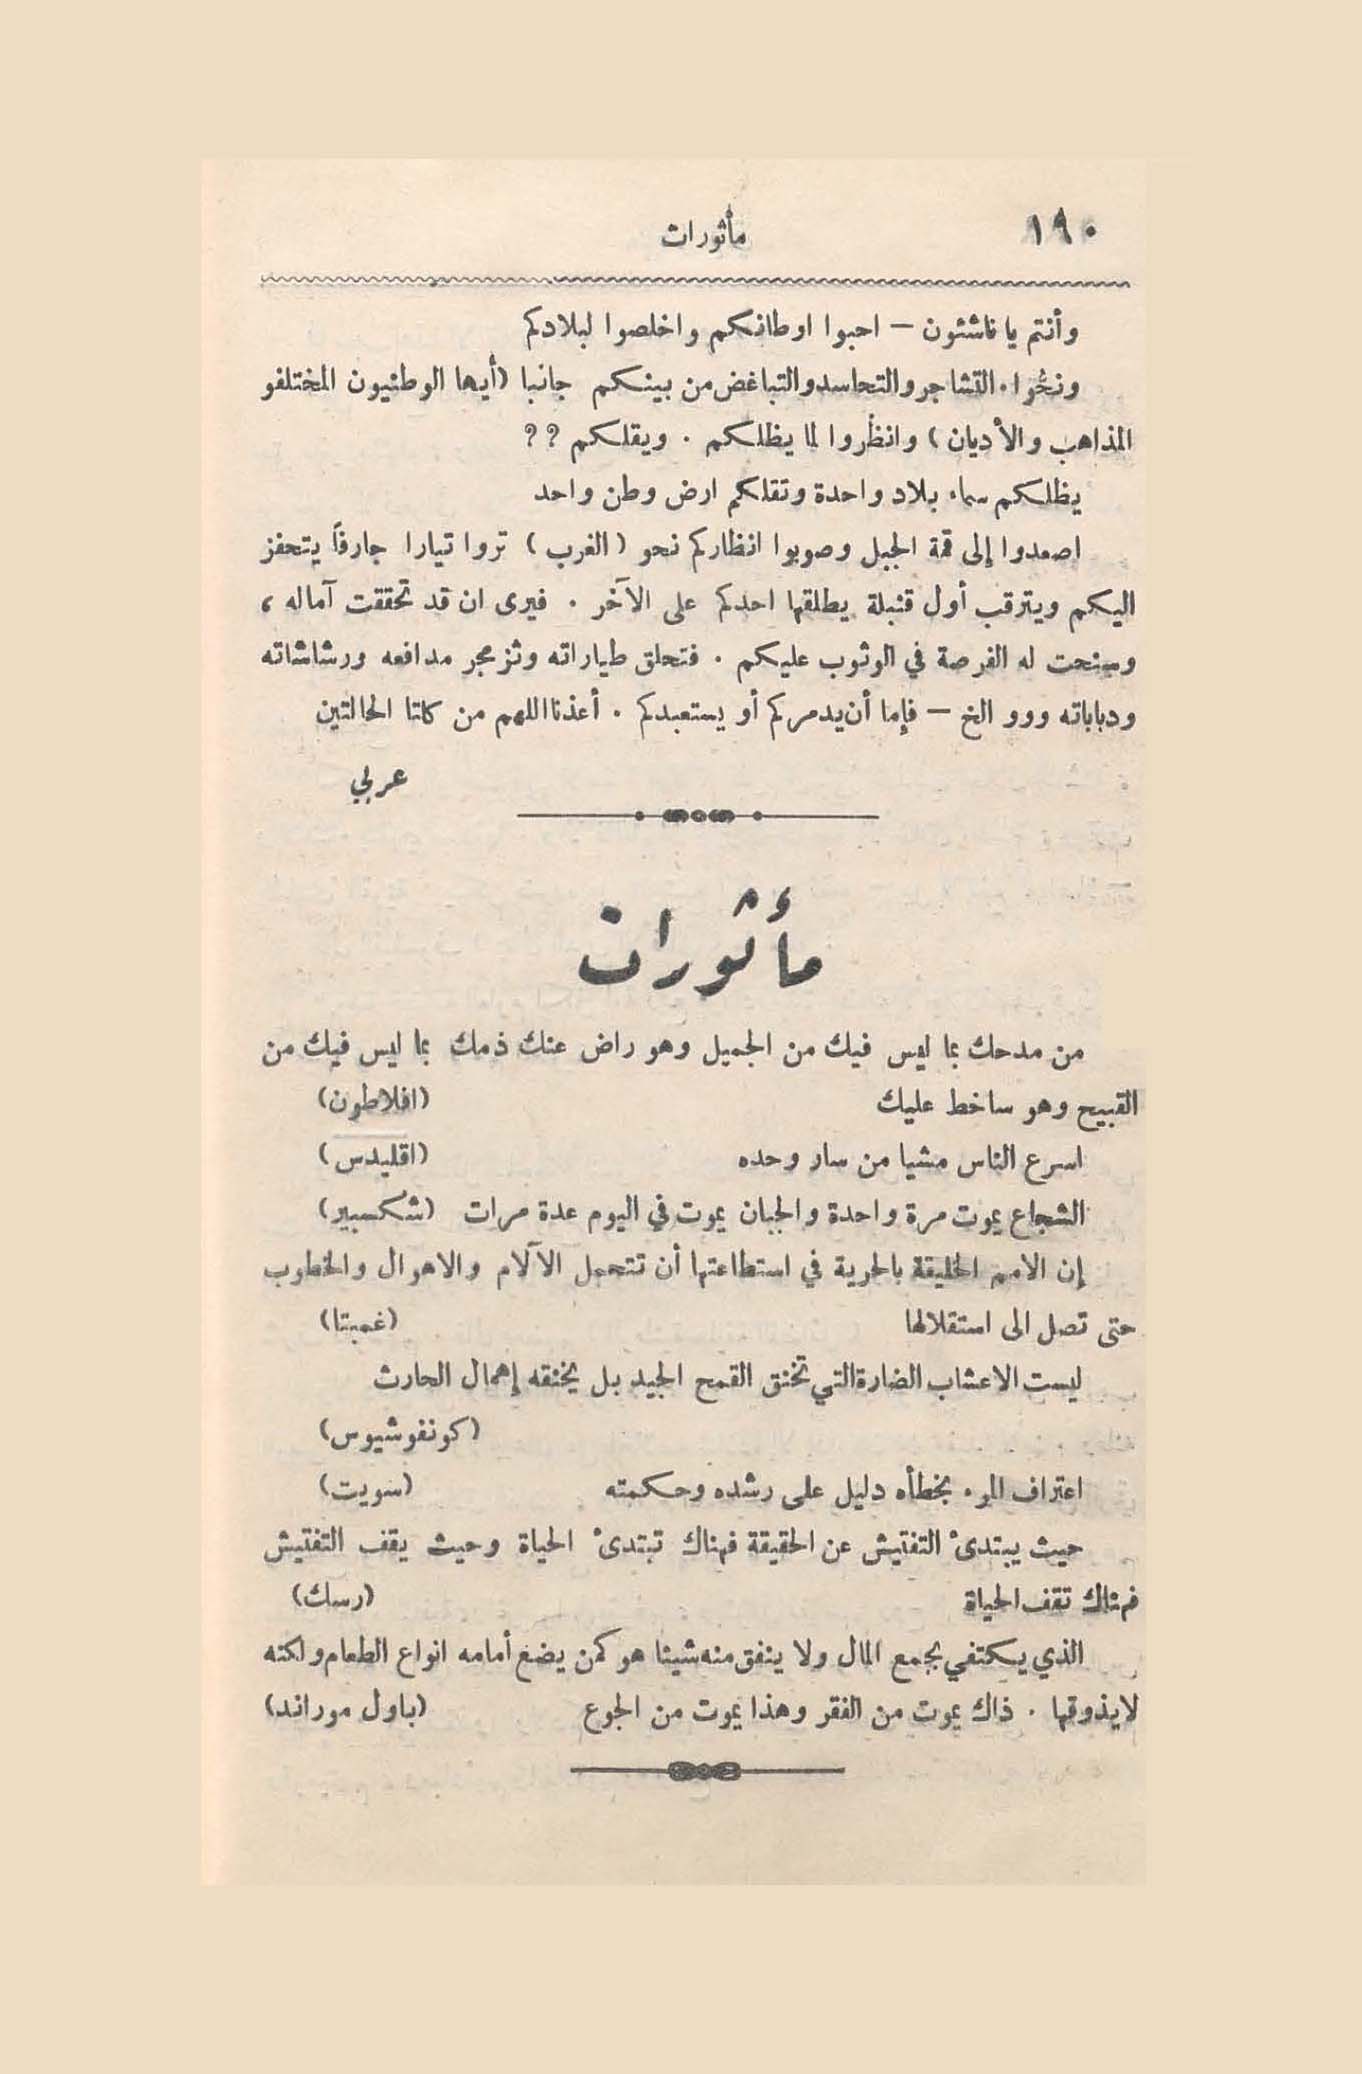 ١٩٠
مأثورات
وأنتم يا ناشئون – احبوا اوطانكم واخلصوا لبلادكم
ونحُّوا التشاجر والتحاسد والتباغض من بينكم جانبا (أيها الوطنيون المختلفو
المذاهب والأديان) وانظروا لما يظلكم . ويقلكم ؟؟
يظلكم سماء بلاد واحدة وتقلكم ارض وطن واحد
اصعدوا إلى قمة الجبل وصوبوا انظاركم نحو (الغرب) تروا تيارا جارفاً يتحفز
اليكم ويترقب أول قنبلة يطلقها احدكم على الآخر . فيرى ان قد تحققت آماله ،
وسنحت له الفرصة في الوثوب عليكم . فتحلق طياراته وتزمجر مدافعه ورشاشاته
ودباباته ووو الخ – فإما أن يدمركم أو يستعبدكم . أعذنا اللهم من كلتا الحالتين
عربي
مأثورات
من مدحك بما ليس فيك من الجميل وهو راض عنك ذمك بما ليس فيك من
القبيح وهو ساخط عليك (افلاطون)
اسرع الناس مشيا من سار وحده (اقليدس)
الشجاع يموت مرة واحدة والجبان يموت في اليوم عدة مرات (شكسبير)
إن الامم الخليقة بالحرية في استطاعتها أن تتحمل الآلام والاهوال والخطوب
حتى تصل الى استقلالها (غمبتا)
ليست الاعشاب الضارة التي تخنق القمح الجيد بل يخنقه إهمال الحارث
(كونفوشيوس)
اعتراف المرء بخطأه دليل على رشده وحكمته (سويت)
حيث يبتدئ التفتيش عن الحقيقة فهناك تبتدئ الحياة وحيث يقف التفتيش
فهناك تقف الحياة (رسك)
الذي يكتفي بجمع المال ولا ينفق منه شيئا هو كمن يضع أمامه انواع الطعام ولكنه
لا يذوقها . ذاك يموت من الفقر وهذا يموت من الجوع (باول موراند)